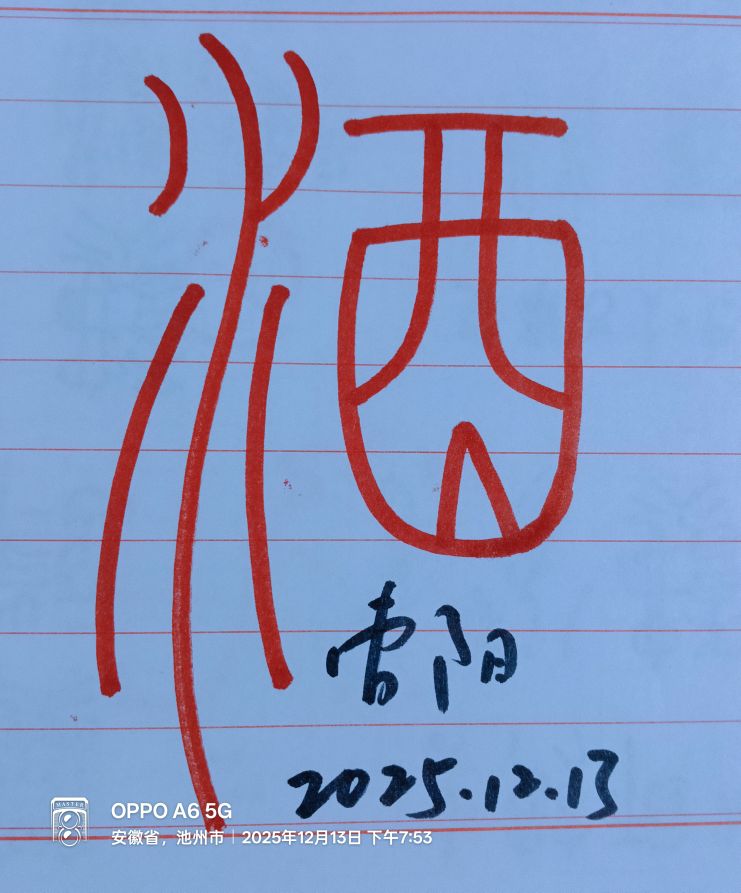 酒
2025.12.13
MASTER
OPPO A6 5G
安徽省，池州市 | 2025年12月13日 下午7:53